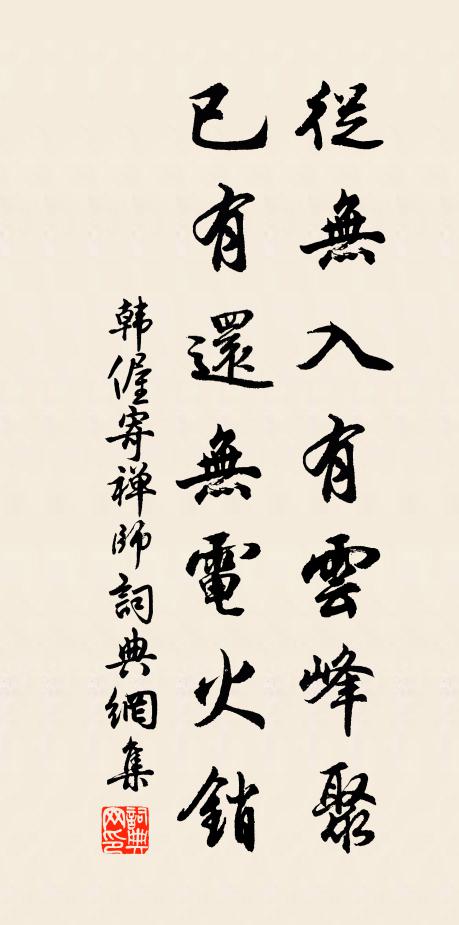 從無入有雲峰聚
已有還無電火銷
韩偓寄禅師詞典網集
詞典網印